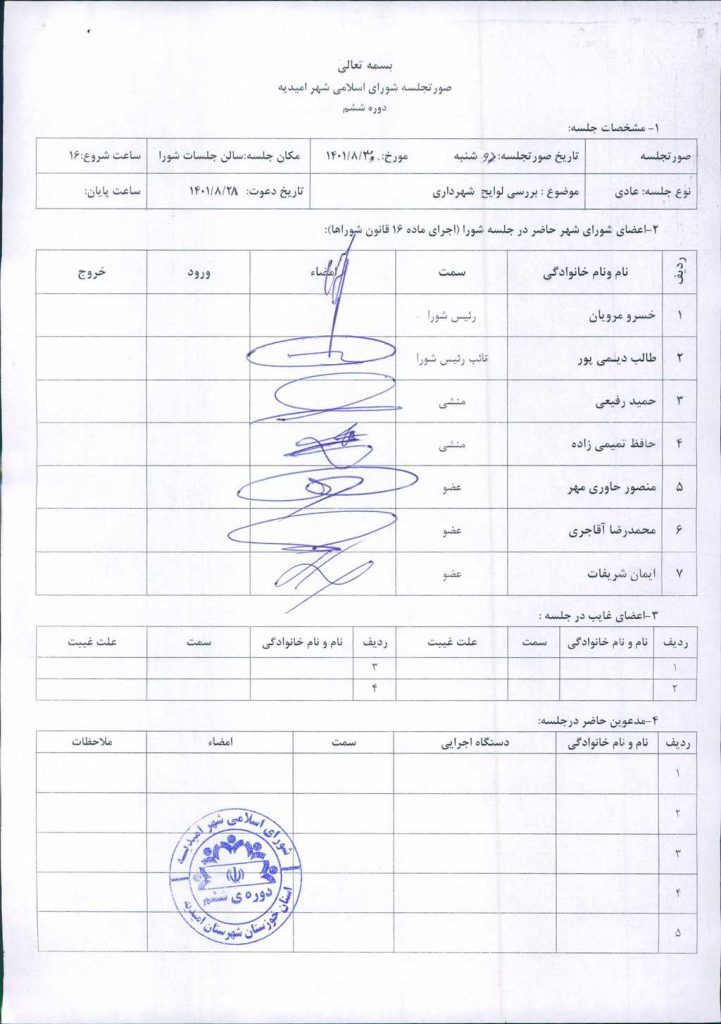 بسمه تعالی
صورتجلسه شورای اسلامی شهر امیدیه
دوره ششم
۱- مشخصات جلسه:
صورتجلسه تاریخ صورتجلسه: شنبه مورخ: ۱۴۰۱/۸/۳۰ مکان جلسه:سالن جلسات شورا ساعت شروع:۱۶
نوع جلسه: عادی موضوع : بررسی لوایح شهرداری تاریخ دعوت: ۱۴۰۱/۸/۲۸ ساعت پایان:
۲-اعضای شورای شهر حاضر در جلسه شورا (اجرای ماده ۱۶ قانون شوراها):
ردیف نام ونام خانوادگی سمت امضاء ورود خروج
۱ خسرو مرویان رئیس شورا
۲ طالب دینمی پور نائب رئیس شورا
۳ حمید رفیعی منشی
۴ حافظ تمیمی زاده منشی
۵ منصور خاوری مهر عضو
۶ محمدرضا آقاجری عضو
۷ ایمان شریفات عضو
۳-اعضای غایب در جلسه :
ردیف نام و نام خانوادگی سمت علت غیبت ردیف نام و نام خانوادگی سمت علت غیبت
۱ ۳
۲ ۴
۴-مدعوین حاضر درجلسه:
ردیف نام و نام خانوادگی دستگاه اجرایی سمت امضاء ملاحظات
۱
۲
۳
۴
۵
شورای اسلامی شهر امیدیه
دوره ی ششم
استان خوزستان شهرستان امیدیه